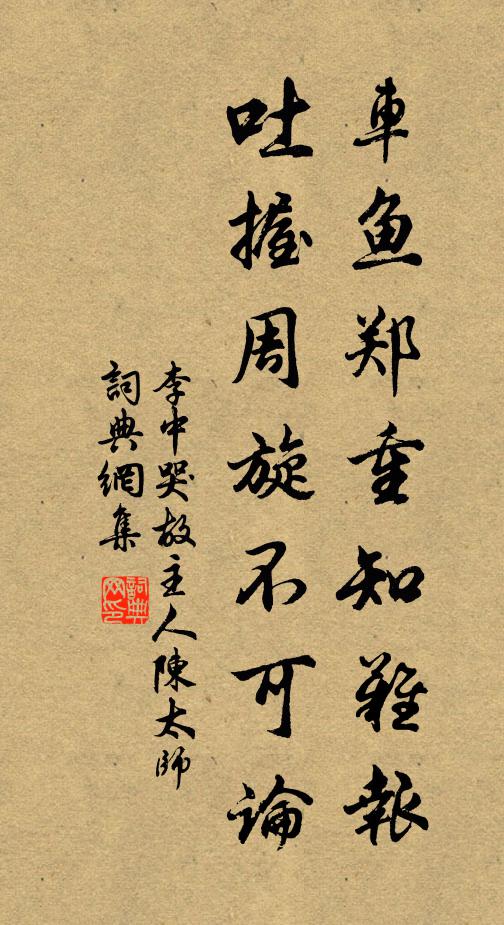 車魚郑重知難報
吐握周旋不可論
李中哭故主人陳太師
詞典網集
詞典网印